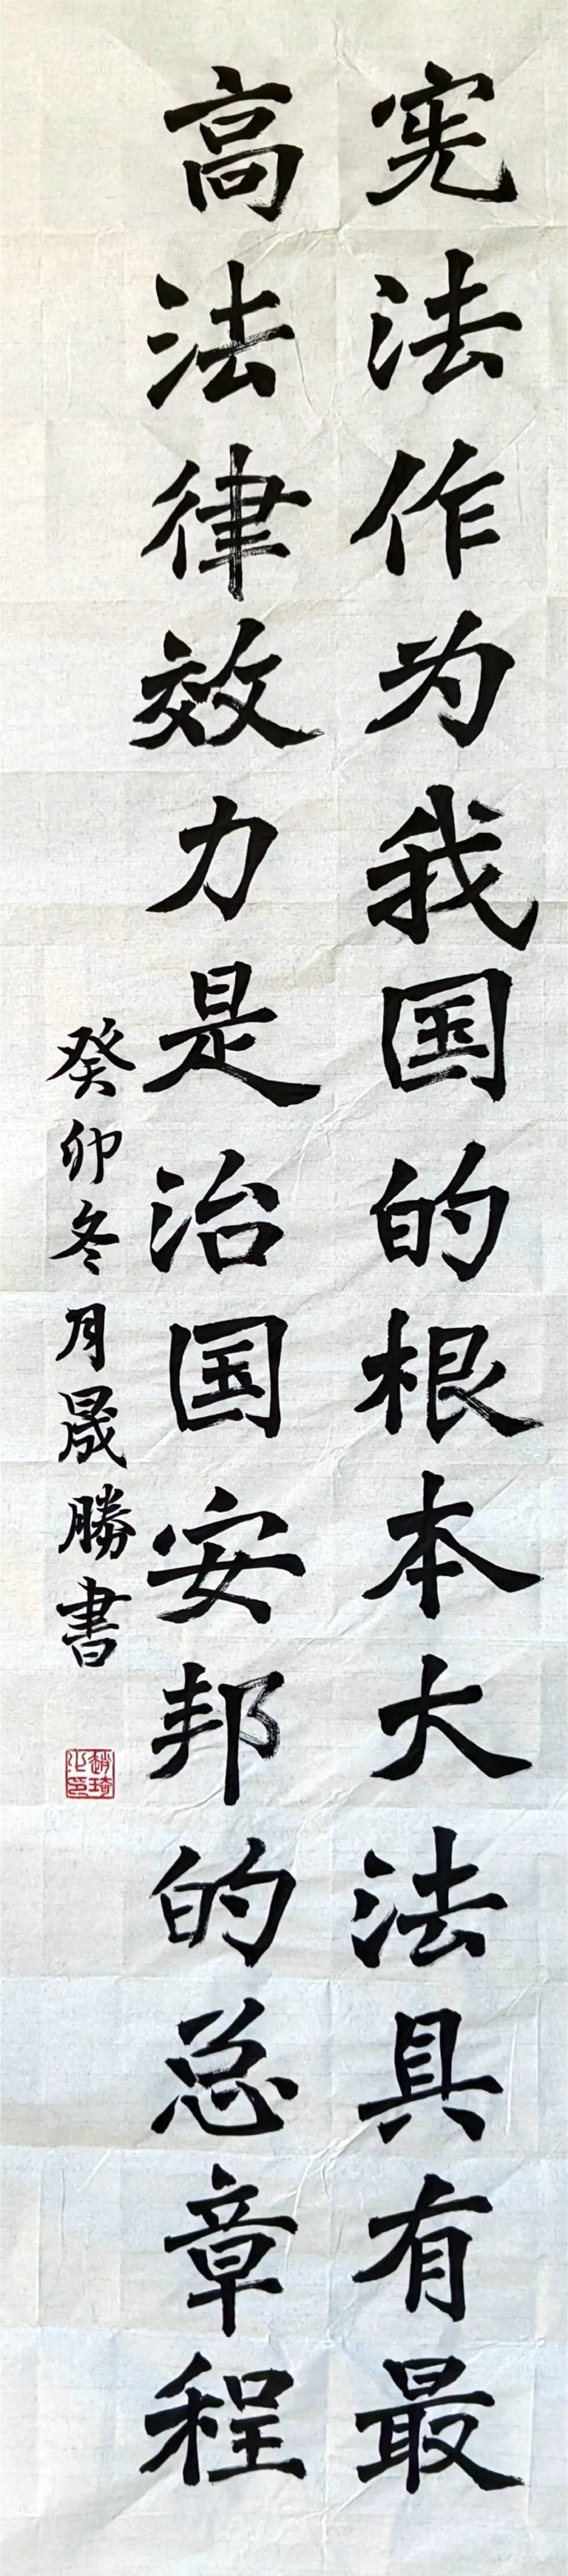 宪法作为我国的根本大法具有最
高法律效力是治国安邦的总章程
癸卯冬月晟勝書